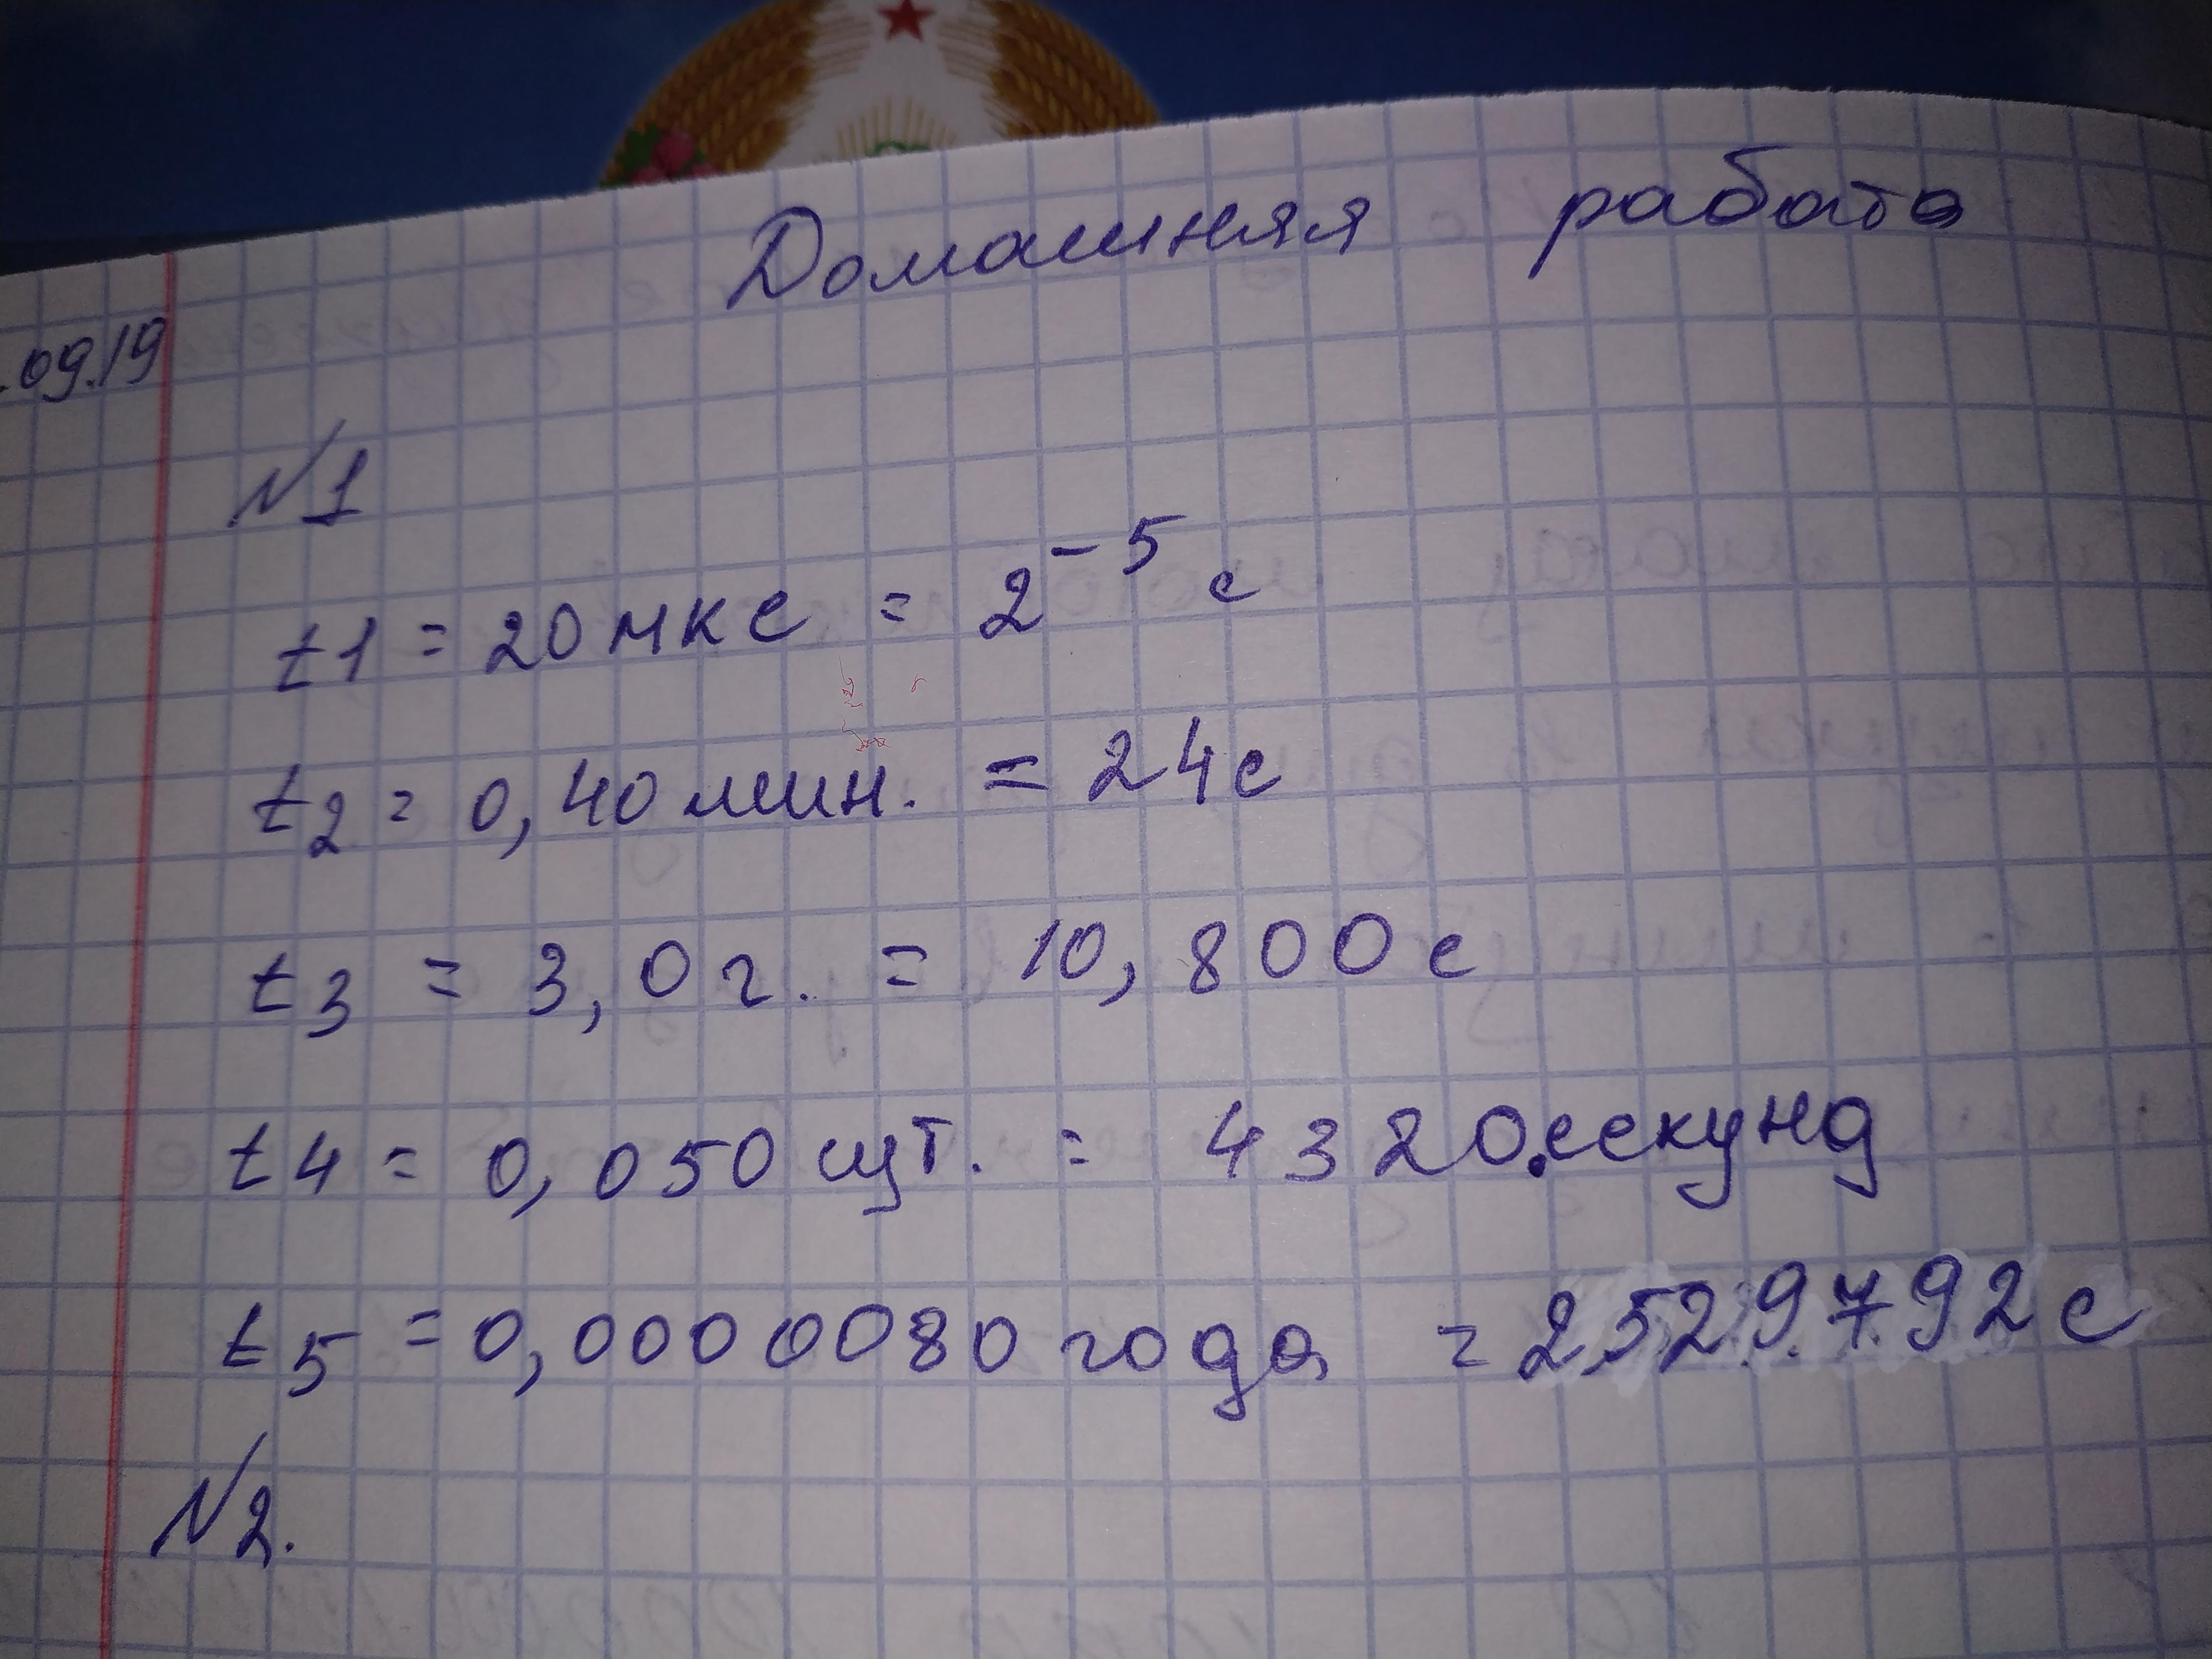 Домашняя работа
.09.19
№1
t1 = 20 мкс = 2⁻⁵ с
t2 = 0,40 мин. = 24с
t3 = 3,0 г. = 10,800 с
t4 = 0,050 сут. = 4320.секунд
t5 = 0,0000080 года = 252.9.7.92 с
№2.